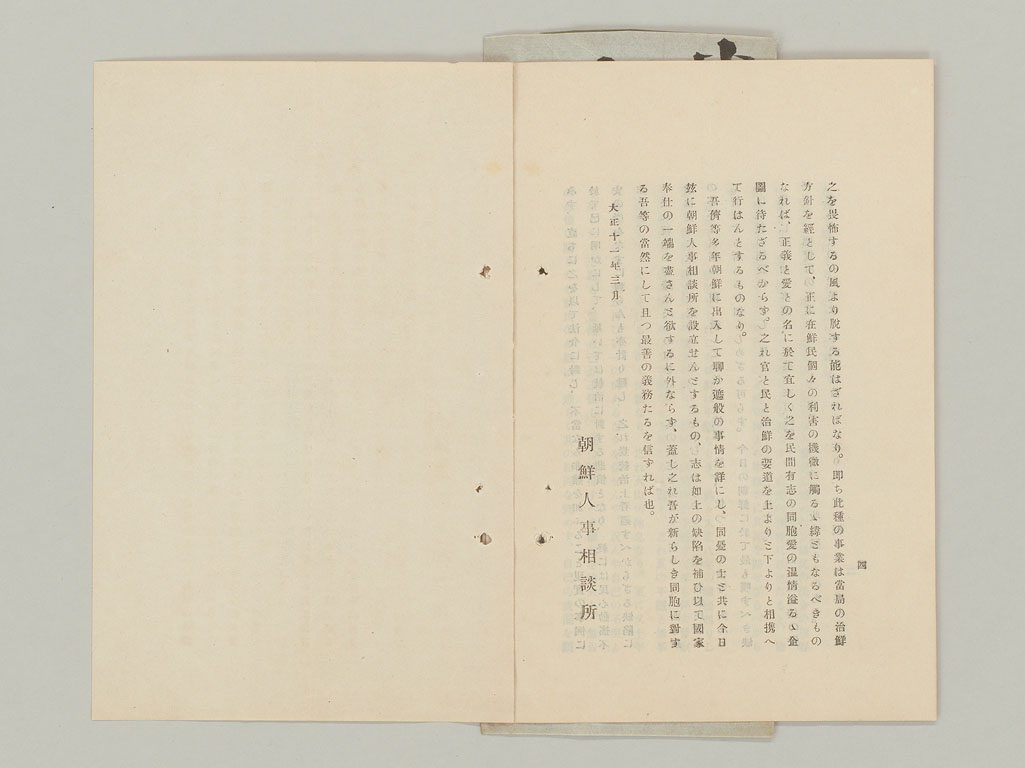 之を畏怖するの風より脱する能はざればなり。即ち此種の事業は當局の治鮮
方針を經として、正に在鮮民個々の利害の機微に觸るゝ緯ともなるべきもの
なれば、正義と愛との名に於て宜しく之を民間有志の同胞愛の温情溢るゝ企
圖に待たざるべからず。之れ官と民と治鮮の要道を上よりと下よりと相携へ
て行はんとするものなり。
吾儕等多年朝鮮に出入して聊か這般の事情を詳にし、同憂の士と共に今日
玆に朝鮮人事相談所を設立せんとするもの、志は如上の缺陷を補ひ以て國家
奉仕の一端を盡さんと欲するに外ならず、蓋し之れ吾が新らしき同胞に對す
る吾等の當然にして且つ最善の義務たるを信ずれば也。
大正十一年三月
朝鮮人事相談所
四